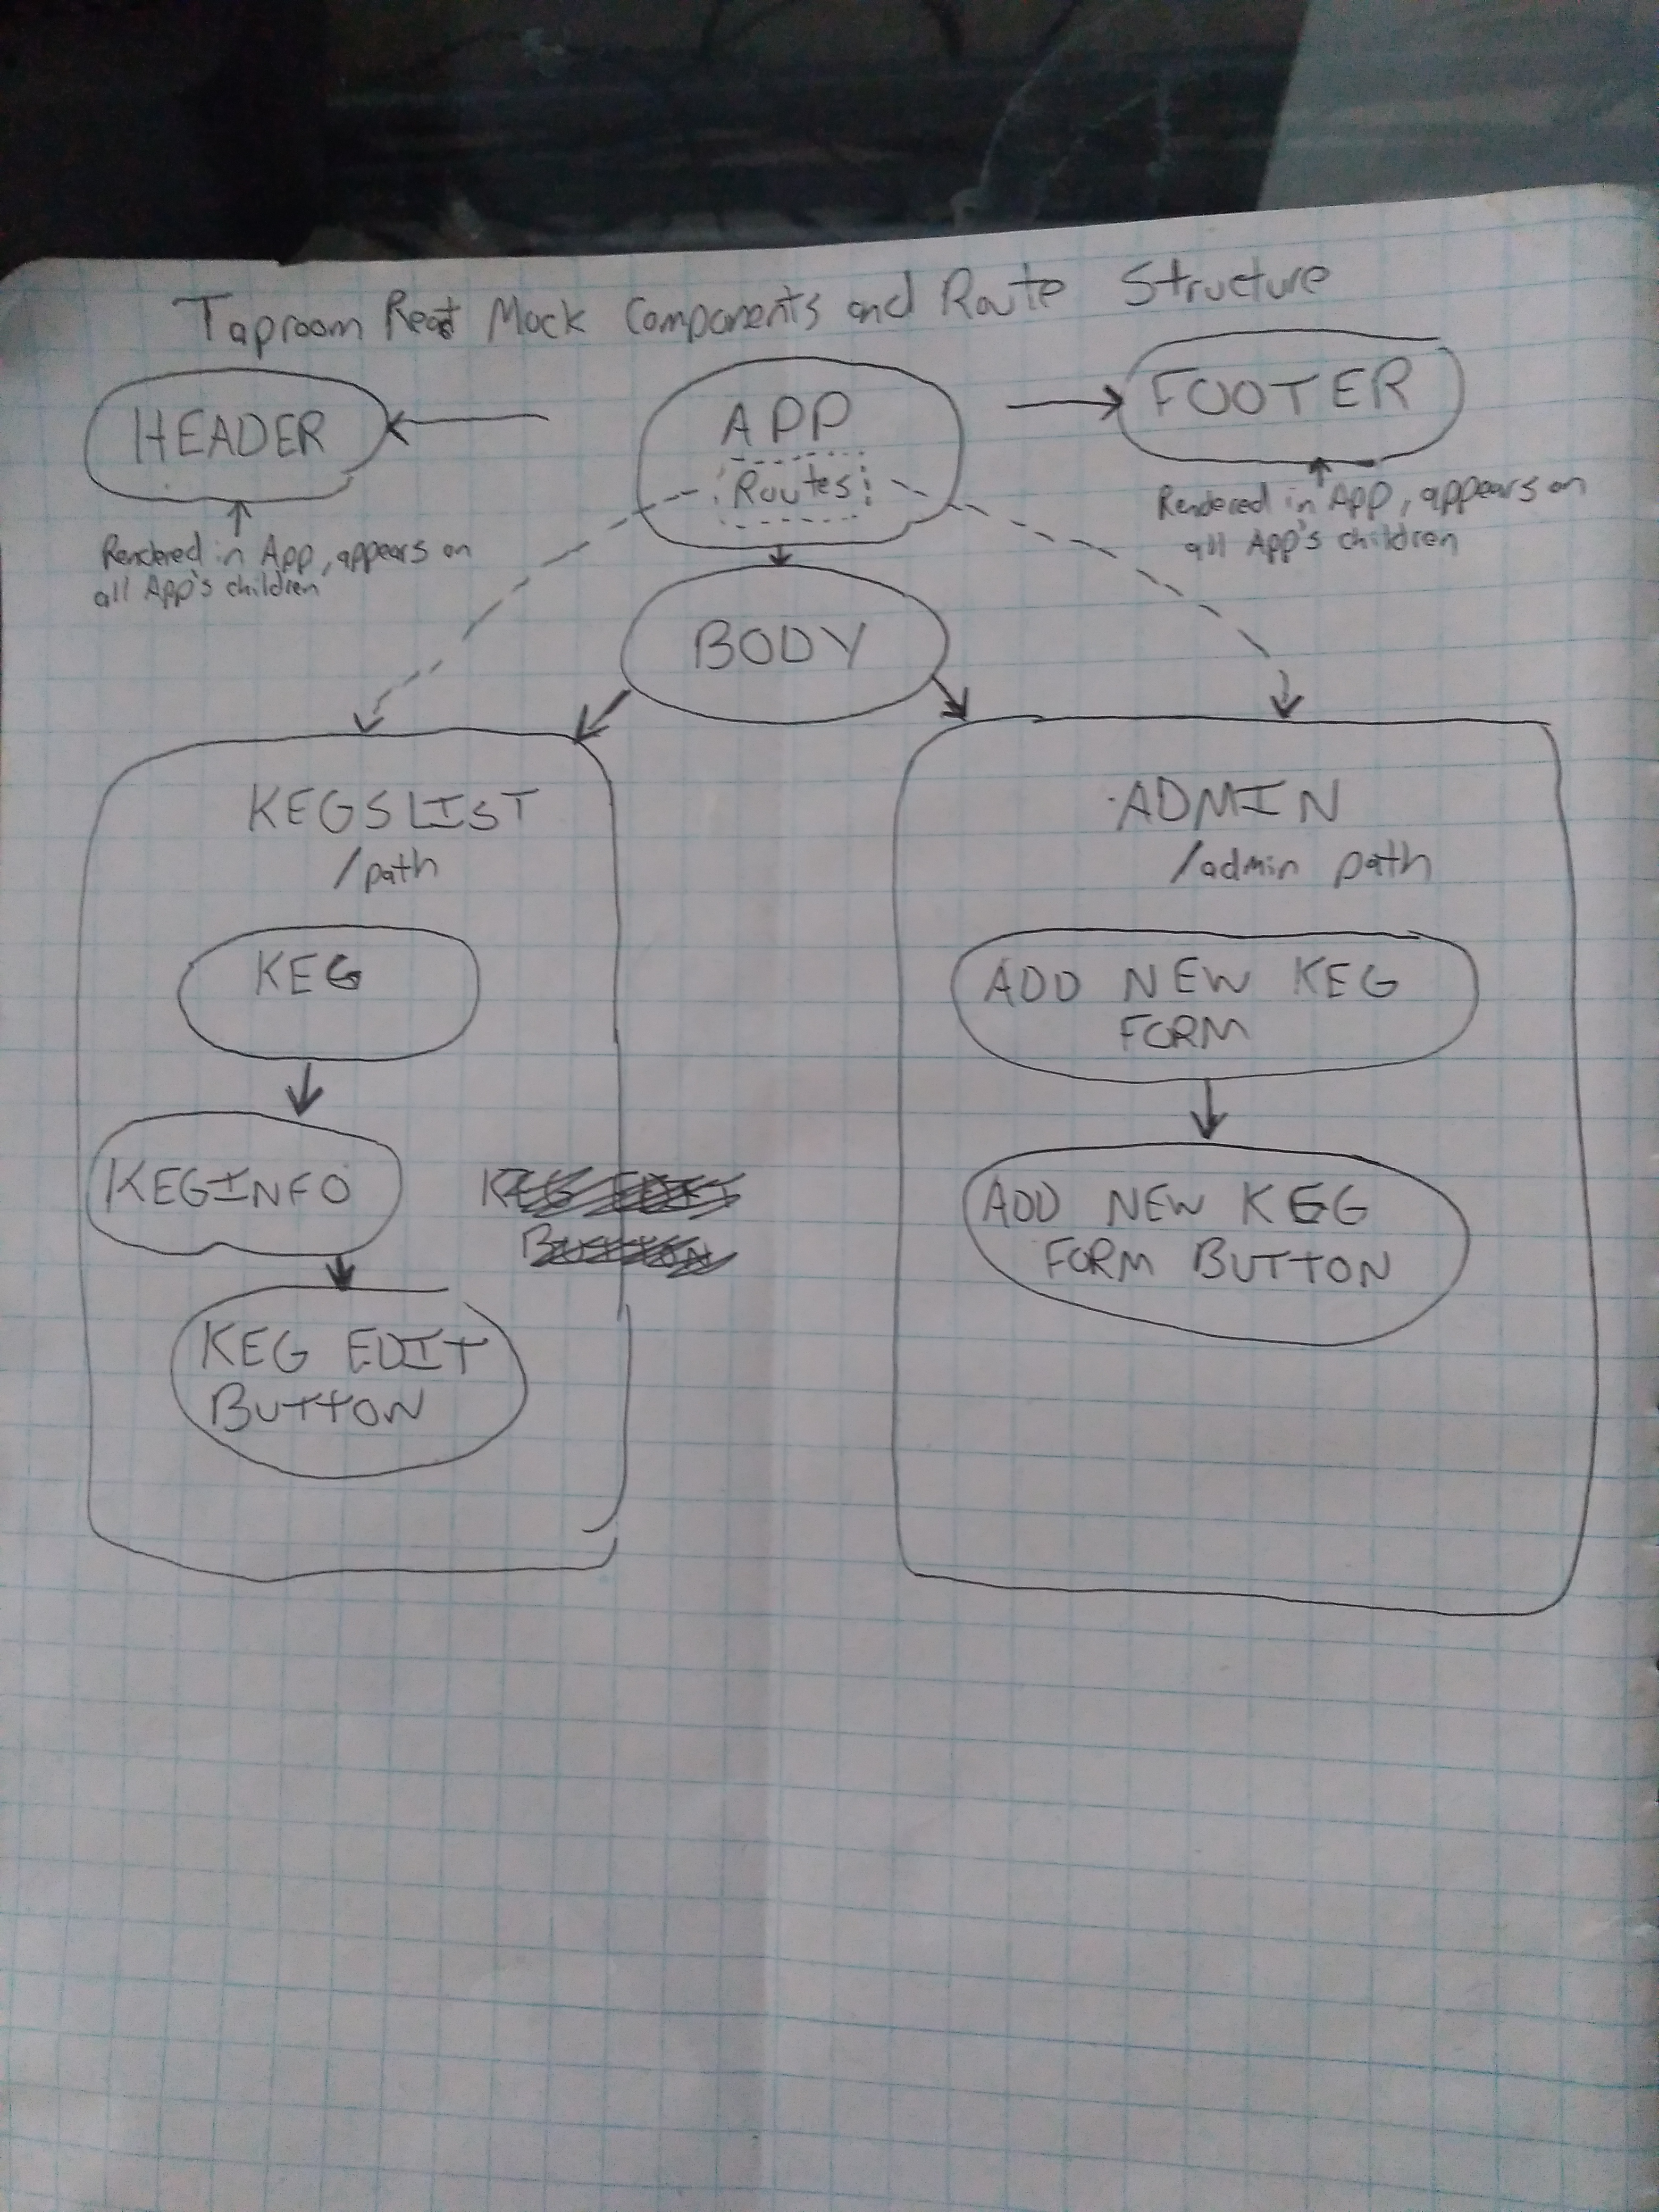 Taproom React Mock Components and Route Structure
HEADER
APP
Routes
FOOTER
Rendered in App, appears on
all App's children
Rendered in App, appears on
all App's children
BODY
KEGSLIST
/path
KEG
KEGINFO
KEG EDIT
BUTTON
KEG EDIT
BUTTON
ADMIN
/admin path
ADD NEW KEG
FORM
ADD NEW KEG
FORM BUTTON